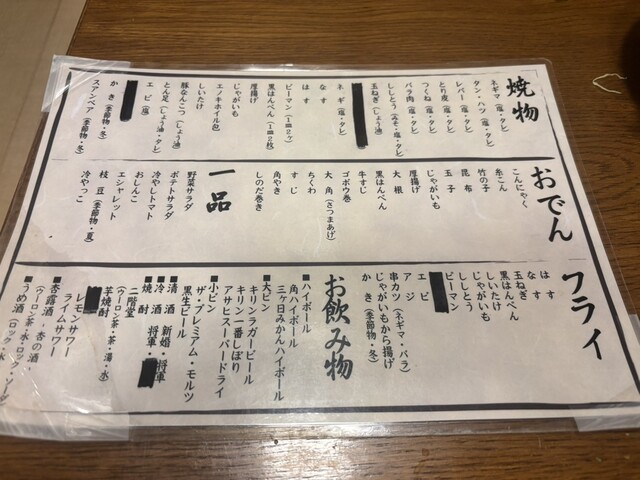 焼物
ネギマ(塩・タレ)
タン・ハツ(塩・タレ)
レバー(塩・タレ)
とり皮(塩・タレ)
つくね(塩・タレ)
バラ肉(塩・タレ)
ししとう(みそ・塩・タレ)
玉ねぎ(しょう油)
ネギ(塩・タレ)
なす
はす
ピーマン(1皿2ヶ)
黒はんぺん(1皿2枚)
厚揚げ
じゃがいも
エノキホイル包
しいたけ
豚なんこつ(しょう油)
とん足(しょう油・タレ)
エビ(塩)
かき(季節物・冬)
スアンベア(季節物・冬)
おでん
こんにゃく
糸こん
竹の子
昆布
玉子
じゃがいも
厚揚げ
大根
黒はんぺん
牛すじ
ゴボウ巻
大角(さつまあげ)
ちくわ
すじ
角やき
しのだ巻き
一品
野菜サラダ
ポテトサラダ
冷やしトマト
おしんこ
エシャレット
枝豆(季節物・夏)
冷やっこ
フライ
はす
なす
玉ねぎ
黒はんぺん
しいたけ
じゃがいも
ししとう
ピーマン
エビ
アジ
串カツ(ネギマ・バラ)
じゃがいもから揚げ
かき(季節物・冬)
お飲み物
■ハイボール
角ハイボール
三ヶ日みかんハイボール
■大ビン
キリンラガービール
キリン一番しぼり
アサヒスーパードライ
■小ビン
ザ・プレミアム・モルツ
黒生ビール
■清酒 新婚・将軍
■冷酒 将軍・
■焼酎
二階堂
(ウーロン茶・茶・湯・水)
芋焼酎
レモンサワー
ライムサワー
■杏露酒 -杏の酒-
(ウーロン茶・水・ロック・ソーダ)
■うめ酒(ロック・水・